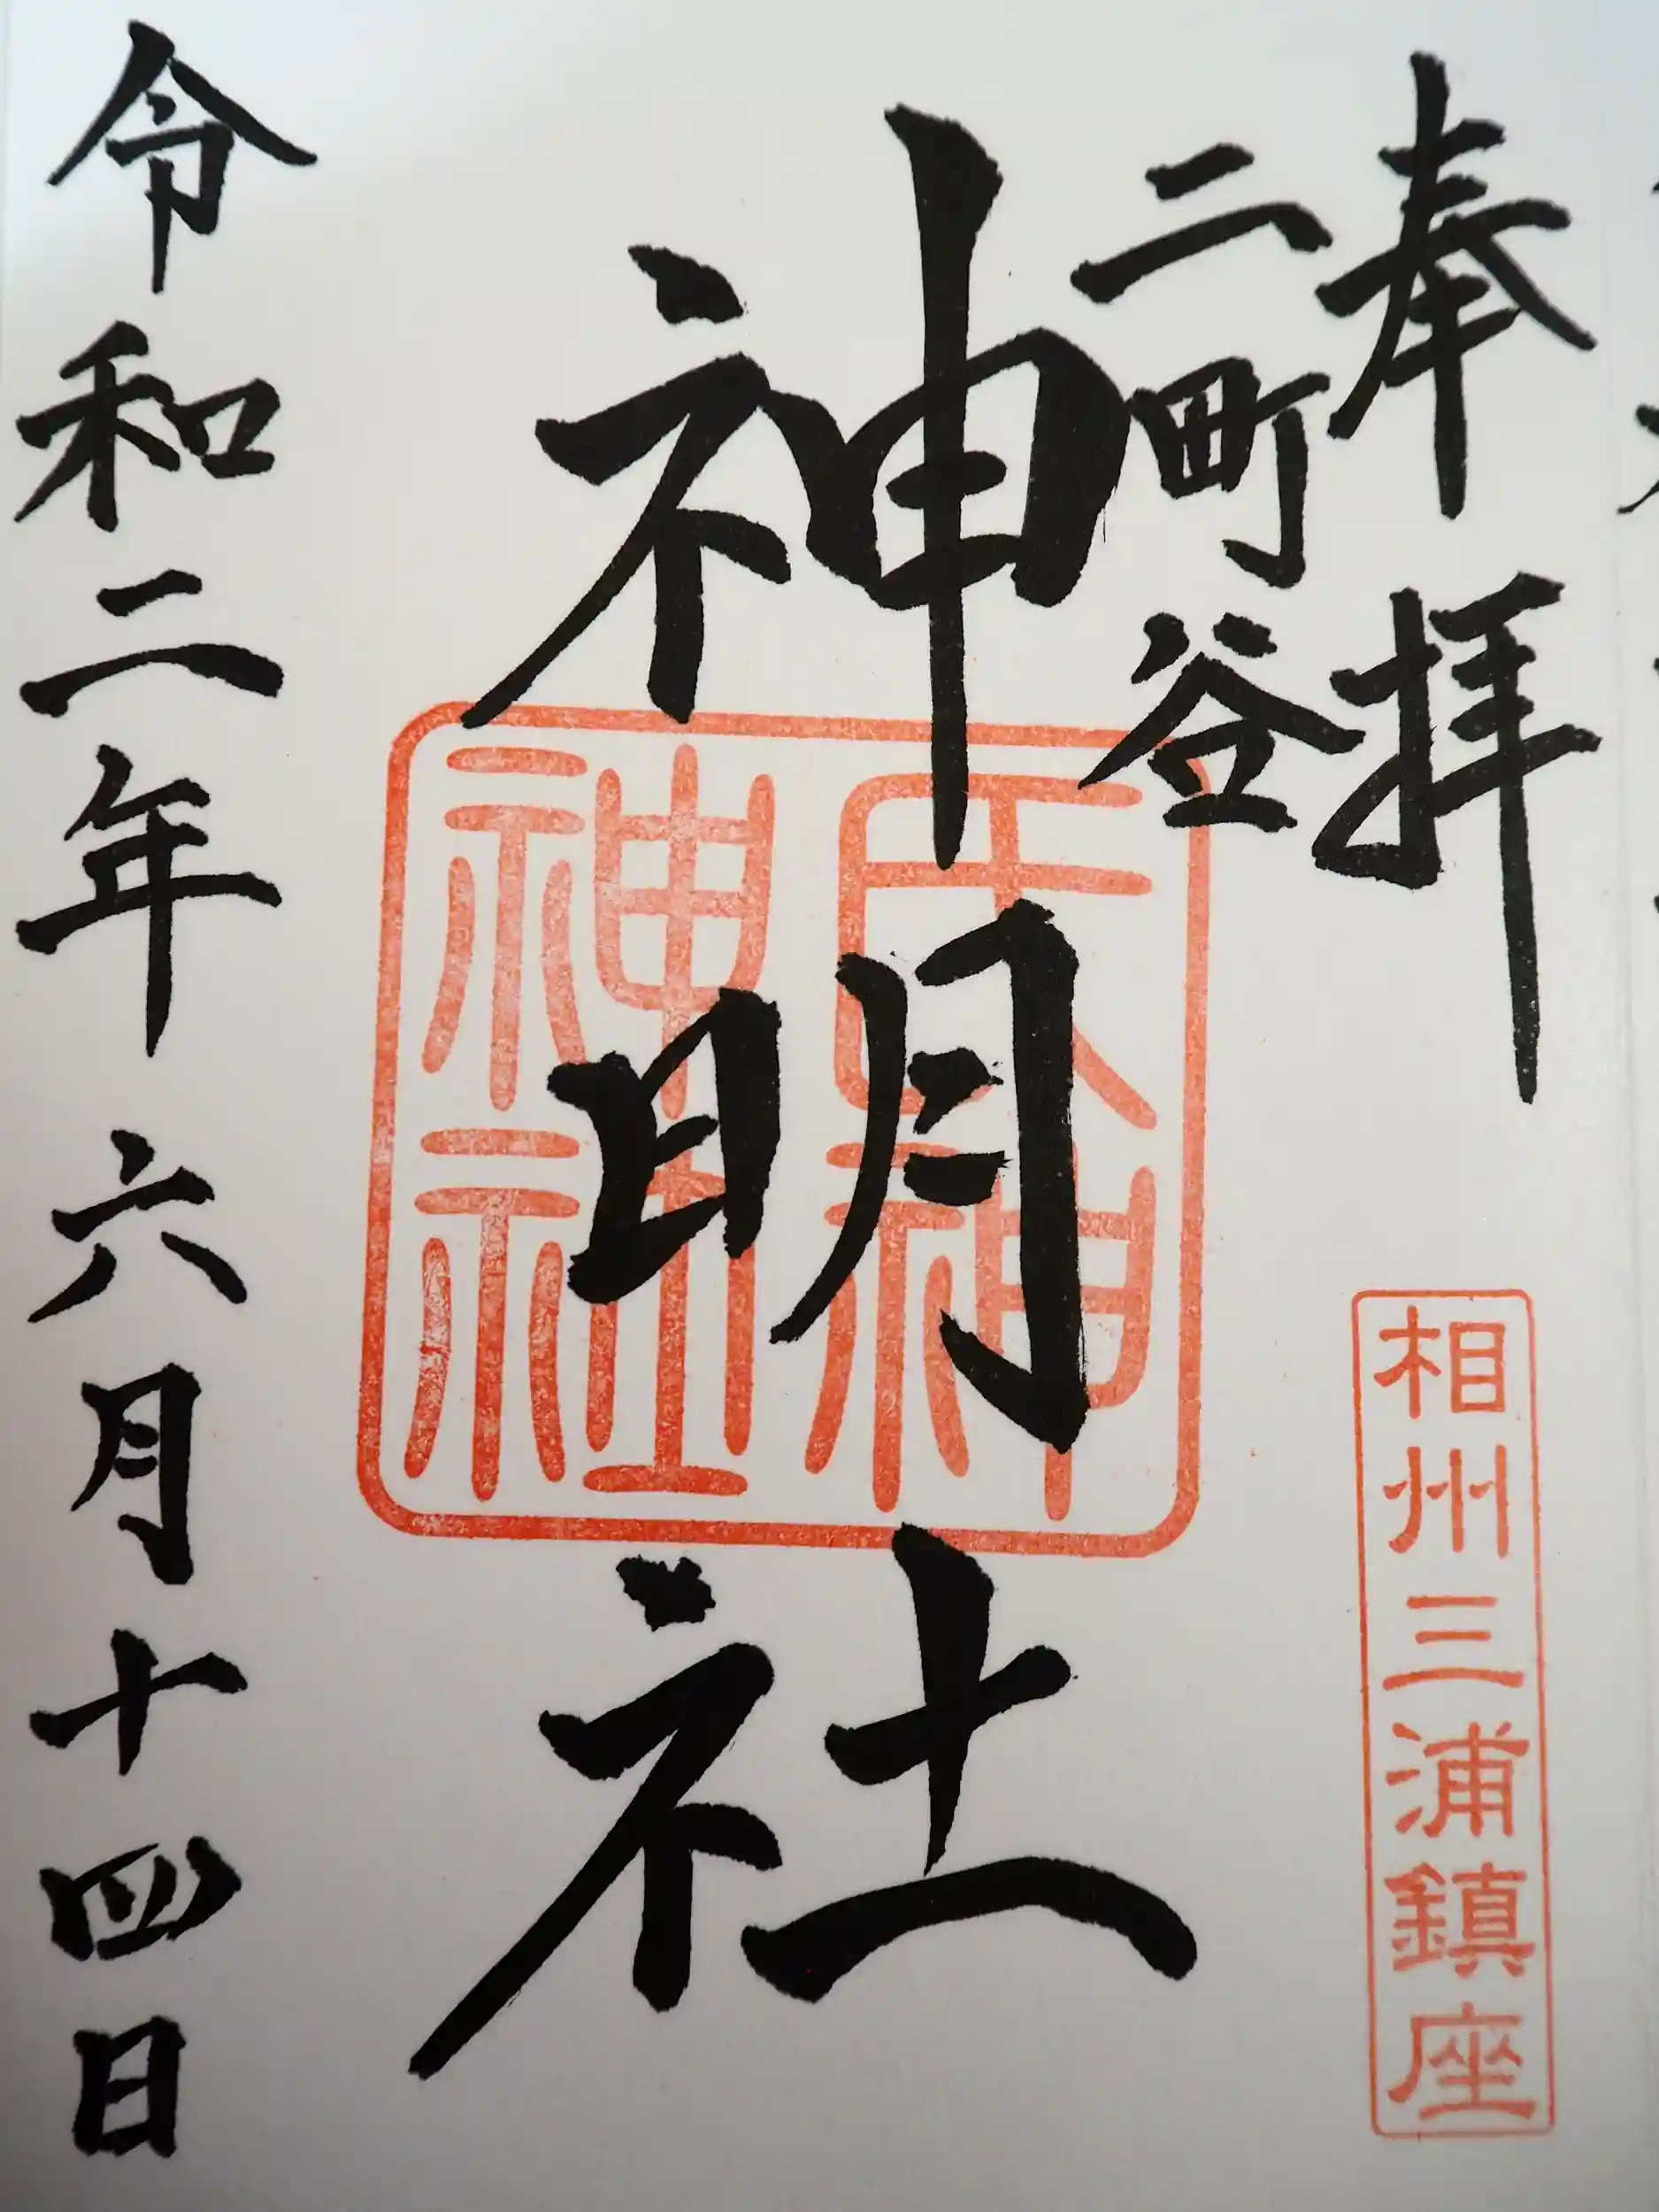 奉拝
二町谷
神明社
氏神神社
相州三浦鎮座
令和二年六月十四日